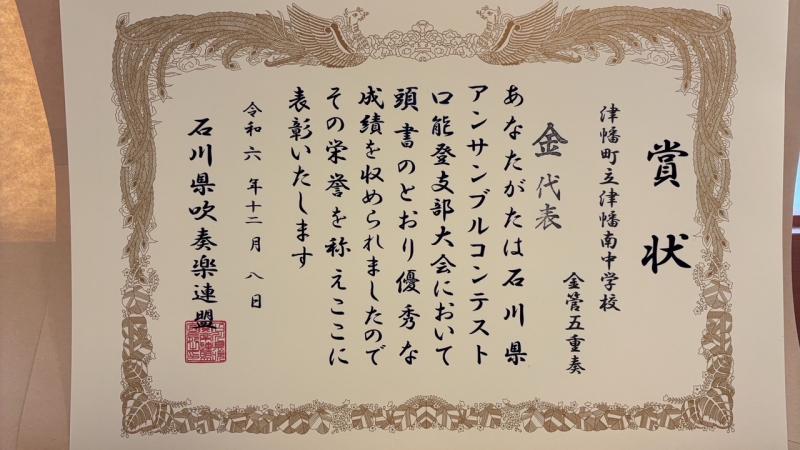 賞状
津幡町立津幡南中学校
金管五重奏
金 代表
あなたがたは石川県
アンサンブルコンテスト
口能登支部大会において
頭書のとおり優秀な
成績を収められましたので
その栄誉を称えここに
表彰いたします
令和六年十二月八日
石川県吹奏楽連盟